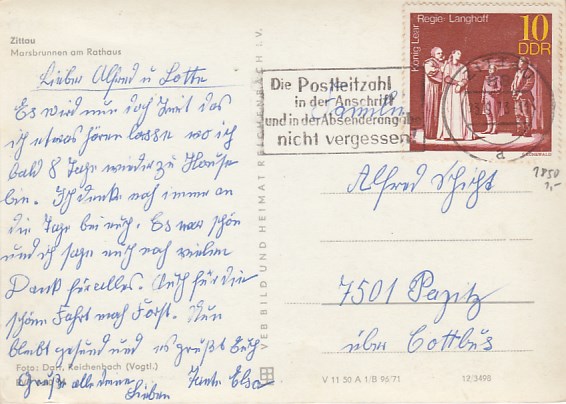 Zittau
Marsbrunnen am Rathaus
Lieber Alfred u Lotte
Es wird nun doch Zeit das
ich etwas hören lasse wo ich
bald 8 Tage wieder zu Hause
bin. Ich denke noch immer an
die Tage bei euch. Es war schön
und ich sage euch noch vielen
Dank für alles. Auch für die
schöne Fahrt nach Forst. Nun
bleibt gesund und es grüßt Euch
Foto: Darr, Reichenbach (Vogtl.)
Grüße alle deine Lieben
Tante Elsa
VEB BILD UND HEIMAT REICHENBACH I. V.
König Lear Regie: Langhoff
10
DDR
Die Postleitzahl
in der Anschrift
und in der Absenderangabe
nicht vergessen
Familie
Alfred
7501
über Cottbus
V 11 50 A 1/B 96/71
12/3498
1,-